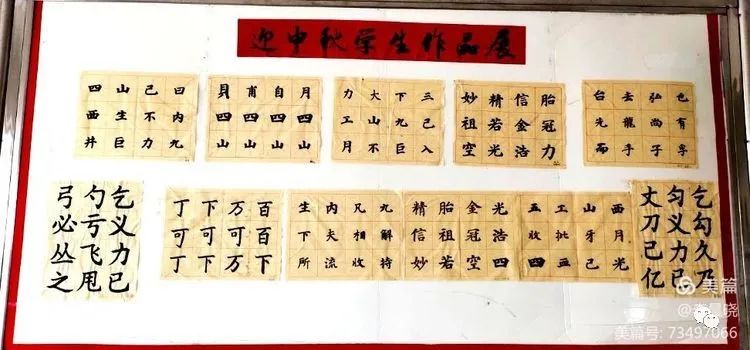 迎中秋学生作品展
四山己曰
西生不内
井巨力九
貝甫自月
四四四四
山山山山
力大下三
工山九己
月不巨入
妙精信胎
祖若金冠
空光浩力
台去弘也
先龍尚有
而手子孚
乞义力已
勺亏飞甩
弓必丛之
丁下万百
可可可可
丁下万下
生内凡九
下夫相解
所流收持
精胎金光
信祖冠浩
妙若空四
五工山西
收批牙月
四亚己光
匀义力已
丈刀己亿
乞勾久乃
美篇
美篇号: 73497066